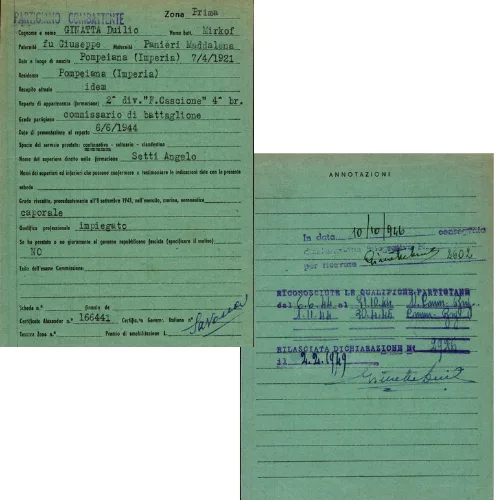 PARTIGIANO COMBATTENTE
Zona Prima
Cognome e nome GINATTA Duilio Nome Batt. Mirkof
Paternità fu Giuseppe Maternità Panieri Maddalena
Data e luogo di nascita Pompeiana (Imperia) 7/4/1921
Residenza Pompeiana (Imperia)
Recapito attuale idem
Reparto di appartenenza (formazione) 2^ div."F.Cascione" 4^ br.
Grado partigiano commissario di battaglione
Data di presentazione al reparto 6/6/1944
Specie del servizio prestato: continuativo - saltuario - clandestino
Nome del superiore diretto nella formazione Setti Angelo
Nomi dei superiori ed inferiori che possono confermare e testimoniare le indicazioni date con la presente
scheda
Grado rivestito, precedentemente all'8 settembre 1943, nell'esercito, marina, aeronautica
caporale
Qualifica professionale impiegato
Se ha prestato o no giuramento al governo repubblicano fascista (specificare il motivo)
NO
Visto dell'esame Commissione:
Scheda n. firmata da
Certificato Alexander n. 166441 Certific/to Govern. Italiano n.
Tessera Zona n. Premio di smobilitazione L.
Savona
ANNOTAZIONI
In data 10/10/946 consegnato
per ricevuta 2602
RICONOSCIUTE LE QUALIFICHE PARTIGIANE
dal 6.6.44 al 31.10.44
1.11.44 30.4.45
RILASCIATA DICHIARAZIONE N° 2926
il 2.2.1949